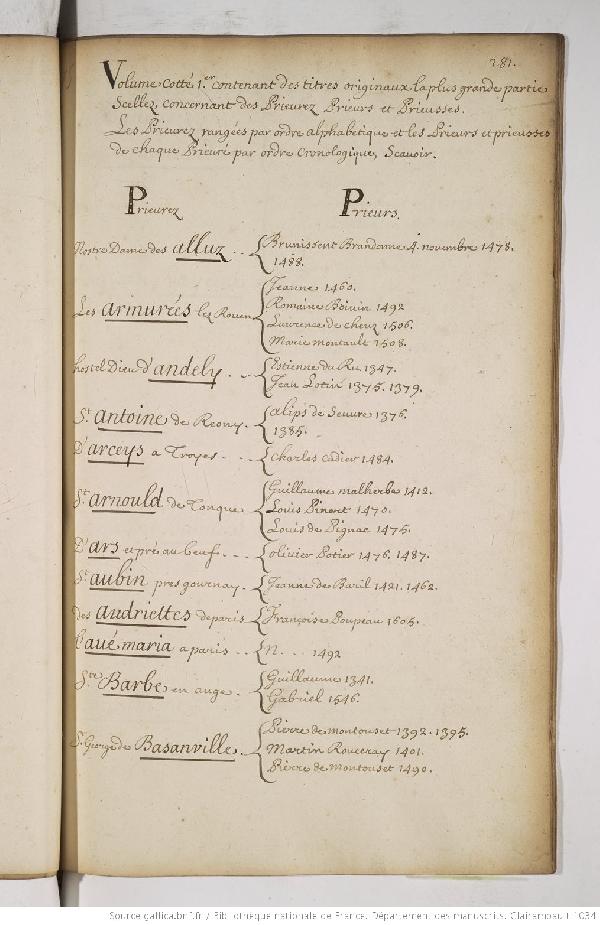 281.
Volume cotté 1.er contenant des titres originaux la plus grande partie
Scellez, concernant des Prieurez Prieurs et Prieusses.
Les Prieurez rangées par ordre alphabetique et les Prieurs et prieusses
de chaque Prieuré par ordre Cronologique, Scauoir.
Prieurez Prieurs.
Nostre Dame des alluz .. Brunissent Brandonne 4. novembre 1478.
1488.
Jeanne 1460.
Les armurées lez Rouen Romaine Boiuin 1492
Laurence de cheuz 1506.
Marie montault 1508.
hostel Dieu d'andely .. Estienne du Ru. 1347.
Jean Lotin 1375. 1379.
St. antoine de Reony. alips de Seuure 1376.
1385.
D'arceys a Troyes - - . Charles Cadier 1484.
Guillaume malherbe 1412.
St. arnould de Touque Louis Pineret 1470.
Louis de Pignac 1475.
D'ars et pré au beuf. - - . olivier Potier 1476. 1487.
St. aubin pres gournay. Jeanne de Baril 1421. 1462.
des audriettes de paris Françoise Poupeau 1605.
l'aué maria a paris .. n. .. 1492
Ste. Barbe en auge. Guillaume 1341.
Gabriel 1546.
Pierre de montouset 1392. 1395.
St. George de Basanville. Martin Rouceray 1401.
Pierre de Montouset 1490.
Source gallica.bnf.fr / Bibliothèque nationale de France. Département des manuscrits. Clairambault 1034